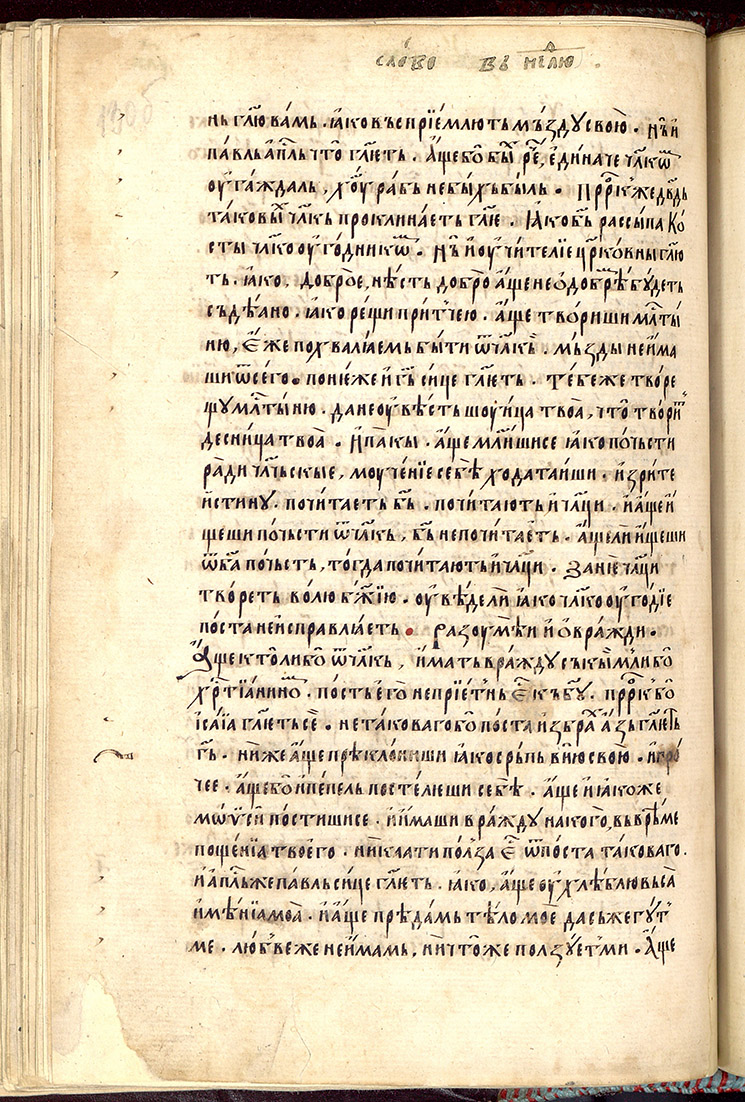 сло́во въ нєⷣлю
нь гл҃ю ва́мь . ꙗ҆́ко въсприе́млють мъздꙋ свою̀ . нѡ и҆
па́вль а҆пⷭ҇ль что̀ гл҃єть . а҆́ще бо̀ бы́хь рє , е҆ди́наче чл҃кѡⷨ
оу҆га́ждаль , хⷭ҇оу ра́бь не бы́хь бы́ль . Прⷪ҇ркь же дв҃дь
та́ковы́хь чл҃кь проклина́єть гл҃є . Ꙗ҆́ко бг҃ь разсы́па ко́
сты чл҃коу҆го́дникѡⷨ . нѡ и҆ оу҆чи́телїе цр҃ко́вны гл҃ю
ть . ꙗ҆́ко , до́брое , нѣ́сть добро̀ а҆́ще не до́брѣ бꙋ́деть
съдѣ́ано . ꙗ҆́ко рещи при́тчею . а҆́ще тво́риши млⷭ҇ты
ню , є҆́же похва́лꙗемь бы́ти ѿ чл҃кь . мъзды не и҆́ма
ши ѿ сего̀ . поне́же и҆ гь҃ си́це гл҃єть . те́бѣ же тво́ре
щꙋ млⷭ҇тыню . да не оу҆вѣ́сть шоу́ица твоа̀ , что̀ твори́ть
десни́ца твоа̀ . И҆ па́кы . а҆́ще мл҃ишисе ꙗ҆́ко по́чьсти
ра́ди чл҃чьскые , моуче́нїе себѣ̀ хода́таиши . и҆ зри́те
и҆́стинꙋ . почита́еть бг҃ь . почита́ють и҆ чл҃ци . и҆ а҆́ще и҆́
щеши по́чьсти ѿ чл҃кь , бг҃ь не почита́еть . а҆́ще ли и҆́щеши
ѿ бг҃а по́чьсть , тогда̀ почита́ють и҆ чл҃ци . Зани́е чл҃ци
тво́реть во́лю бж҃їю . оу҆вѣ́дѣли ꙗ҆́ко чл҃коу҆го́дїе
по́ста не и҆справлꙗ́еть . Разоумѣ́и и҆ о҆ вра́жди .
А҆́ще кто̀ либо̀ ѿ чл҃кь , и҆́мать враждꙋ съ кы́мь либо̀
хрⷭ҇тїа́нинѡⷨ . по́сть е҆го̀ непрїе́тнь є҆ⷭ҇ къ бг҃ꙋ . прⷪ҇ркь бо̀
і҆са́їа гл҃єть сѐ . не та́коваго бо̀ по́ста и҆збра́хь а҆́зь гл҃єть
гь҃ . ни́же а҆́ще прѣкло́ниши ꙗ҆́ко срь́пь вы́ю свою̀ . и҆ про́
чее . а҆́ще бо̀ и҆ пе́пель посте́лѥши себѣ̀ . а҆́ще и҆ ꙗ҆́коже
мѡѵ̈си́ по́стишисе . и҆ и҆́маши враждꙋ на кого̀ , въ врѣ́ме
поще́нїа твоего̀ . ни́ клати по́лза є҆ⷭ҇ ѿ по́ста та́коваго .
и҆ а҆пⷭ҇ль же па́вль си́це гл҃єть . ꙗ҆́ко , а҆́ще оу҆хлѣ́блю вьса̀
и҆мѣ́нїа моа̀ . и҆ а҆́ще прѣда́мь тѣ́ло моѐ да сьже́гꙋть
ме . лю́бве же не и҆́мамь , ничто́же по́лзꙋеть ми . А҆́ще